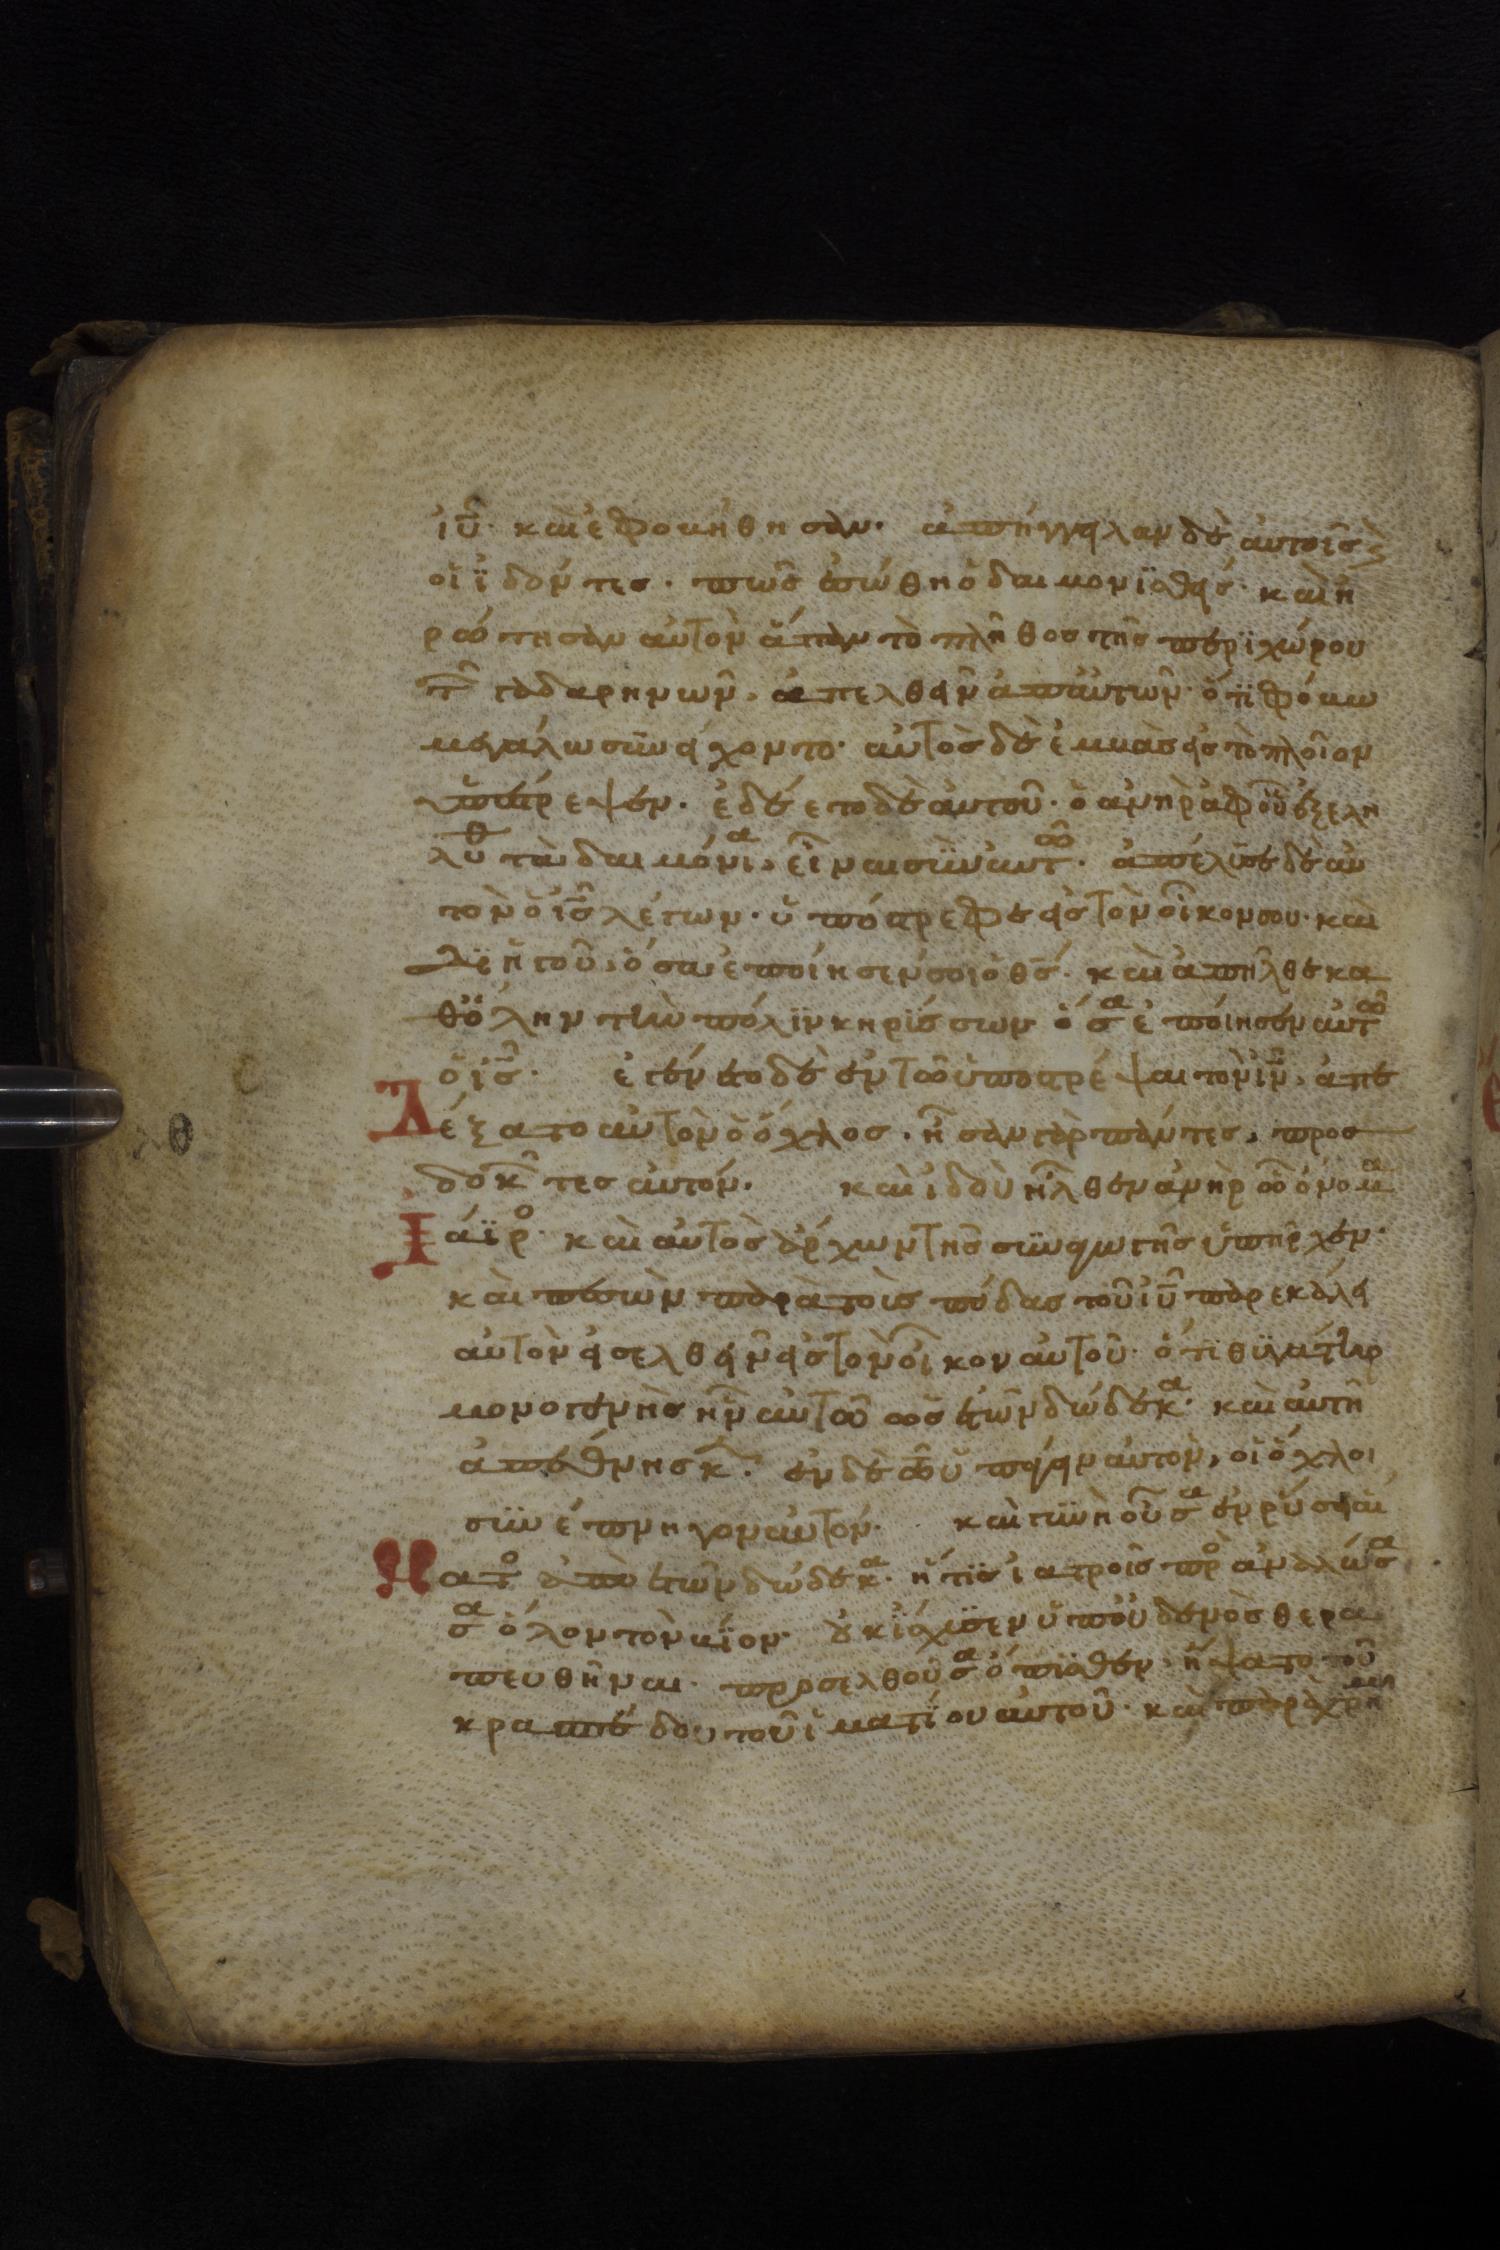 ἰῦ· καὶ ἐφοβήθησαν· ἀπήγγειλαν δὲ αὐτοῖς καὶ
οἱ ἰδόντες· πῶς ἐσώθη ὁ δαιμονϊσθείς· καὶ ἠ
ρώτησαν αὐτὸν ἅπαν τὸ πλῆθος τῆς περϊχώρου
τῶν γαδαρηνῶν, ἀπελθεῖν ἀπ αὐτῶν· ὅτϊ φόβω
μεγάλω συνείχοντο· αὐτὸς δὲ ἐμβὰς εἰς τὸ πλοῖον
ὑπέστρεψεν· ἐδέετο δὲ αὐτοῦ· ὁ ἀνὴρ ἀφ οὗ ἐξελη
λύθ τὰ δαιμόνια, εἶναι σὺν αὐτῶ· ἀπέλυσε δὲ αυ
τὸν ὁ ἰς λέγων· ὑπόστρεφε εἰς τὸν οἶκον σου· καὶ
διηγοῦ, ὅσα ἐποίησέν σοι ὁ θς· καὶ ἀπῆλθε κα
θ ὅλην τὴν πόλϊν κηρύσσων ὅσα ἐποίησεν αὐτῶ
ὁ ἰς· ἐγένετο δὲ ἐν τῶ ὑποστρέψαι τὸν ἰν, ἀπε
δέξατο αὐτὸν ὁ ὄχλος· ἦσαν γὰρ πάντες, προσ
δοκῶντες αὐτόν· καὶ ἰδοὺ ἦλθεν ἀνὴρ ὧ ὄνομα
Ἰάϊρο· καὶ αὐτὸς ἄρχων τῆς συναγωγῆς ὑπῆρχεν·
καὶ πεσὼν παρὰ τοὺς πόδας τοῦ ἰῦ παρεκάλει
αὐτὸν εἰσελθεῖν εἰς τὸν οἶκον αὐτοῦ· ὅτϊ θυγάτηρ
μονογενὴς ἦν αὐτῶ ὡς ἐτῶν δώδεκα· καὶ αὐτὴ
ἀπέθνησκεν· ἐν δὲ τῶ ὑπάγειν αὐτὸν, οἱ ὄχλοι
συνέπνηγον αὐτόν· καὶ γυνὴ οὖσα ἐν ρύσει αἵ
ματο ἀπὸ ἐτῶν δώδεκα· ἥτϊς ἰατροῖς προσαναλώσα
σα ὅλον τὸν βίον· οὐκ ἴσχυσεν ὑπ οὐδενὸς θερα
πευθῆναι· προσελθοῦσα ὄπϊσθεν, ἥψατο τοῦ
κρασπέδου τοῦ ἱματίου αὐτοῦ· καὶ παραχρῆμα